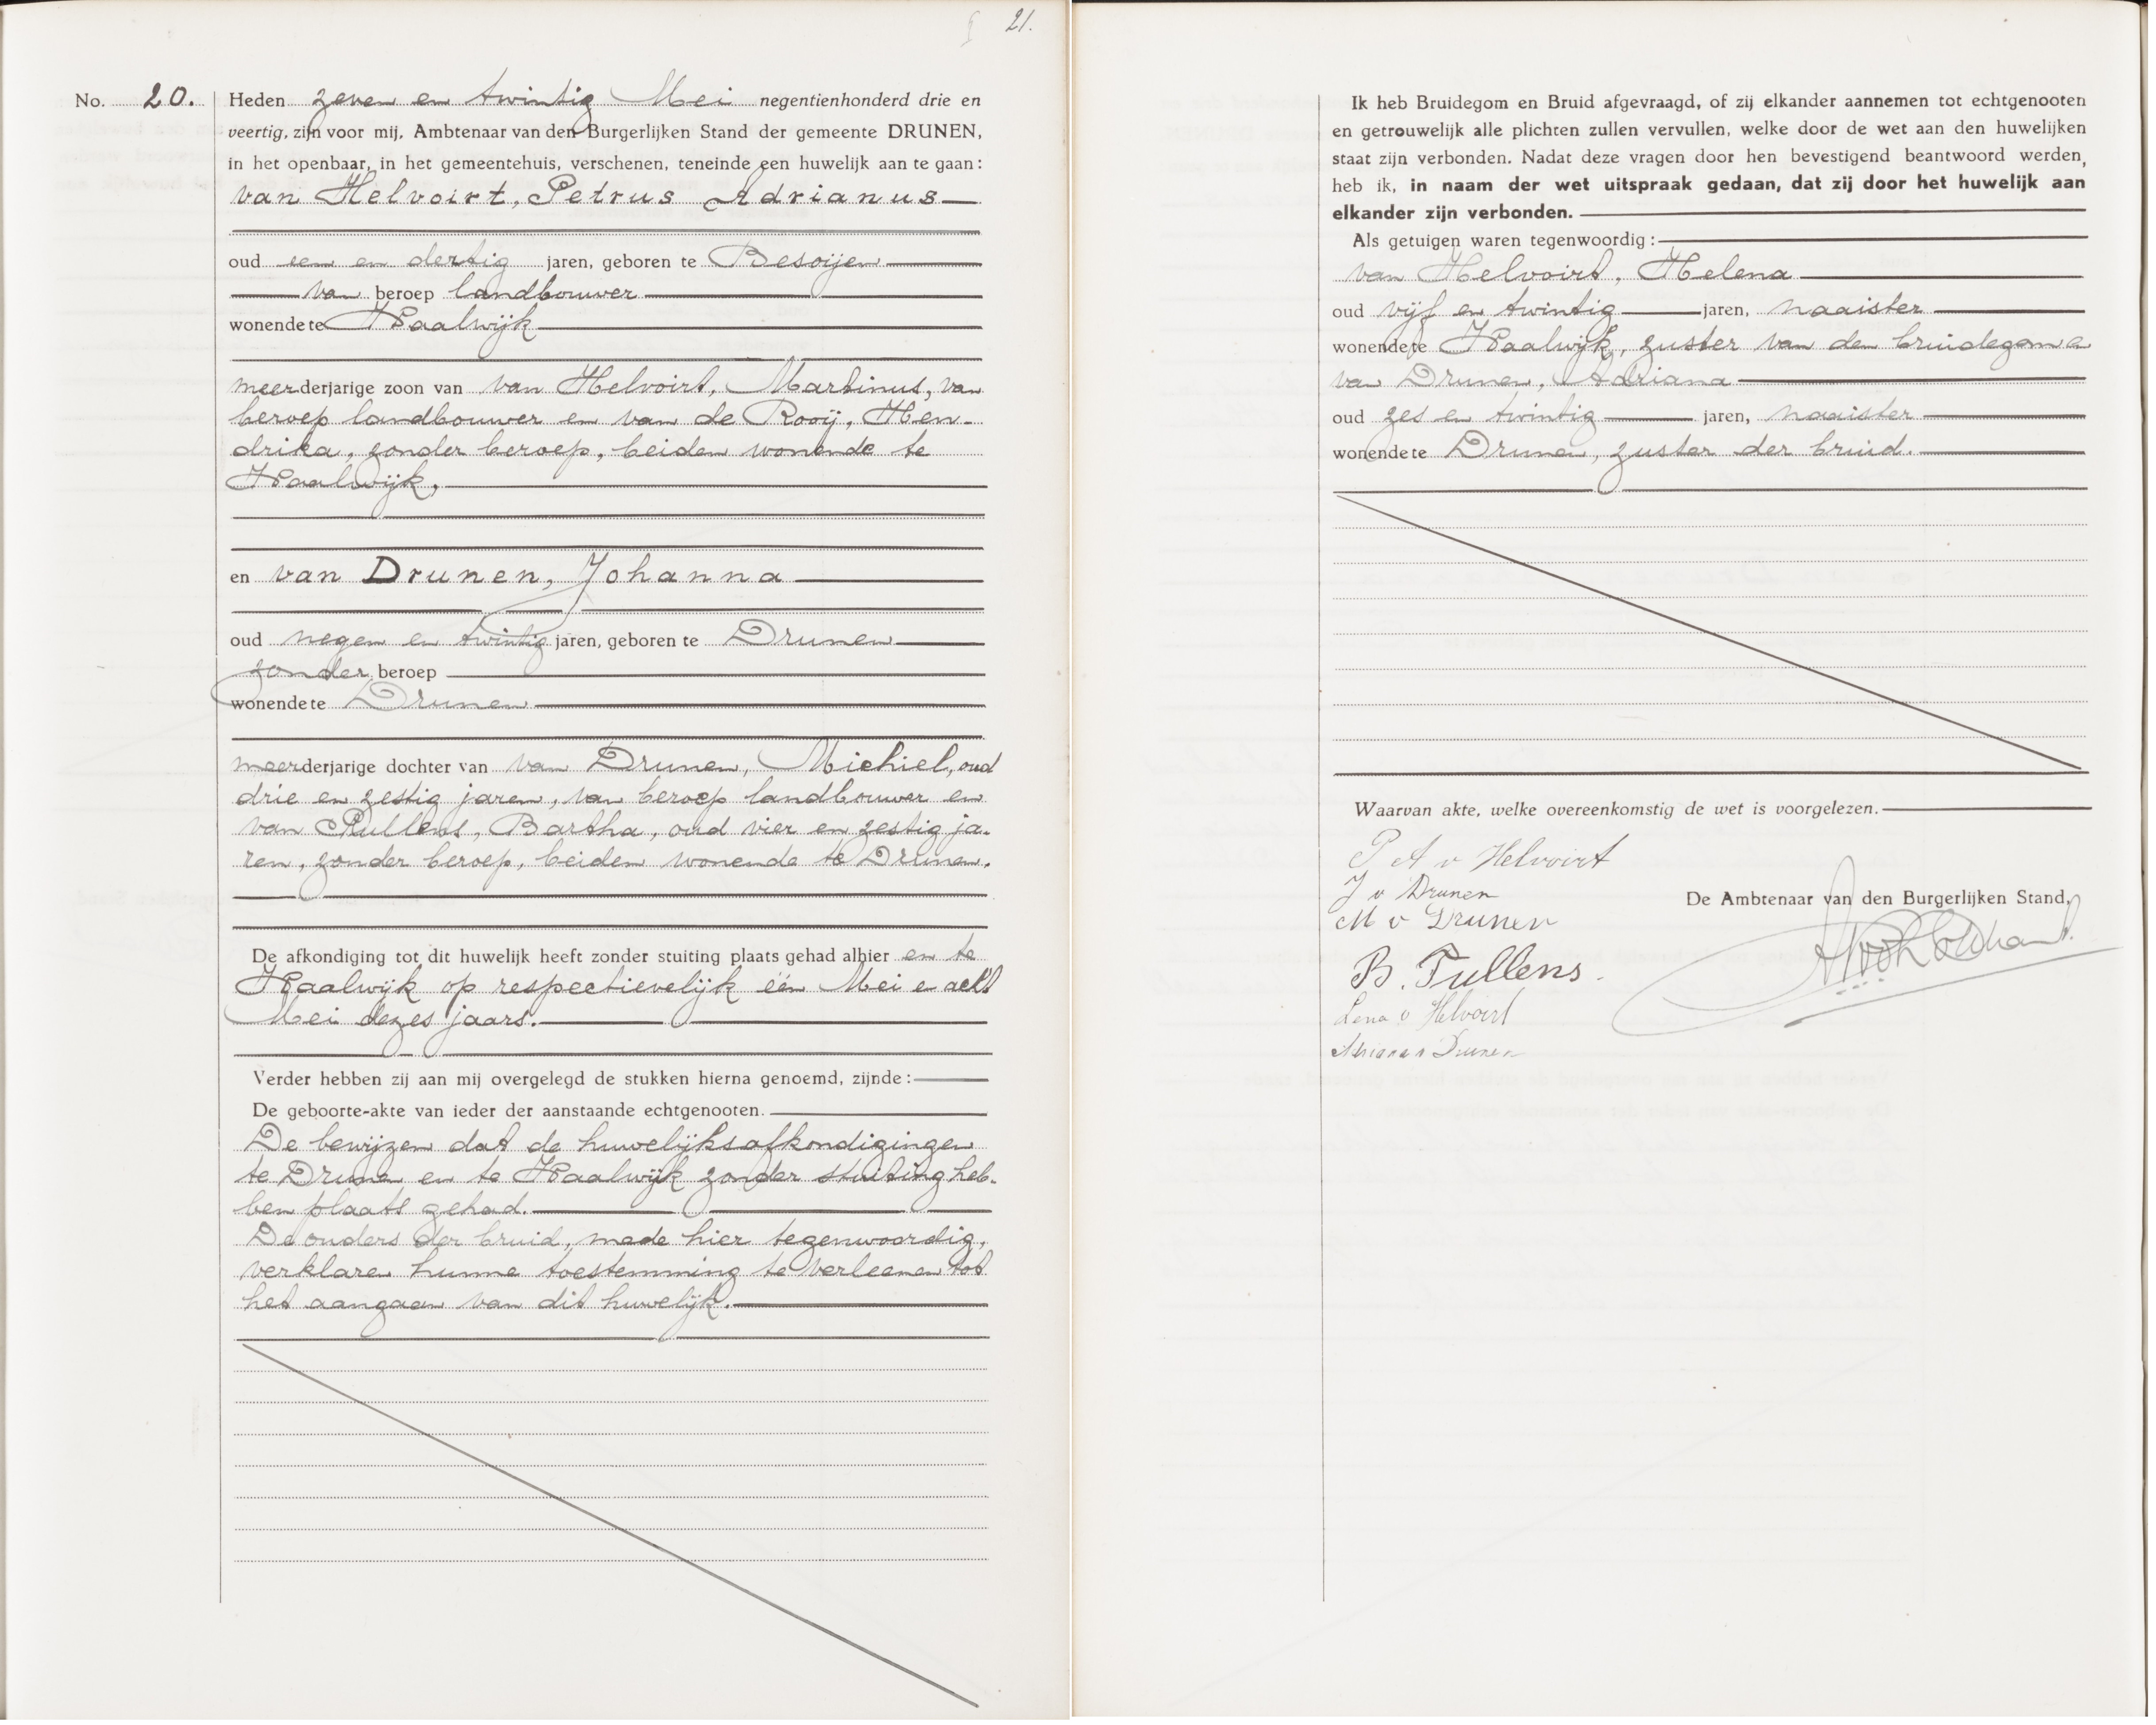 21.
No. 20.
Heden zeven en twintig Mei negentienhonderd drie en
veertig, zijn voor mij, Ambtenaar van den Burgerlijken Stand der gemeente DRUNEN,
in het openbaar, in het gemeentehuis, verschenen, teneinde een huwelijk aan te gaan:
van Helvoirt, Petrus Adrianus
oud een en dertig jaren, geboren te Besoijen
van beroep landbouwer
wonende te Waalwijk
meerderjarige zoon van van Helvoirt, Martinus, van
beroep landbouwer en van de Rooij, Hen-
drika, zonder beroep, beiden wonende te
Waalwijk,
en van Drunen, Johanna
oud negen en twintig jaren, geboren te Drunen
zonder beroep
wonende te Drunen
meerderjarige dochter van van Drunen, Michiel, oud
drie en zestig jaren, van beroep landbouwer en
van Pullens, Bartha, oud vier en zestig ja-
ren, zonder beroep, beiden wonende te Drunen.
De afkondiging tot dit huwelijk heeft zonder stuiting plaats gehad alhier en te
Waalwijk op respectievelijk één Mei e acht
Mei dezes jaars.
Verder hebben zij aan mij overgelegd de stukken hierna genoemd, zijnde:
De geboorte-akte van ieder der aanstaande echtgenooten.
De bewijzen dat de huwelijksafkondigingen
te Drunen en te Waalwijk zonder stuiting heb-
ben plaats gehad.
De ouders der bruid, mede hier tegenwoordig,
verklaren hunne toestemming te verleenen tot
het aangaan van dit huwelijk.
Ik heb Bruidegom en Bruid afgevraagd, of zij elkander aannemen tot echtgenooten
en getrouwelijk alle plichten zullen vervullen, welke door de wet aan den huwelijken
staat zijn verbonden. Nadat deze vragen door hen bevestigend beantwoord werden,
heb ik, in naam der wet uitspraak gedaan, dat zij door het huwelijk aan
elkander zijn verbonden.
Als getuigen waren tegenwoordig:
van Helvoirt, Helena
oud vijf en twintig jaren, naaister
wonende te Waalwijk, zuster van den bruidegom e
van Drunen, Adriana
oud zes en twintig jaren, naaister
wonende te Drunen, zuster der bruid.
Waarvan akte, welke overeenkomstig de wet is voorgelezen.
P A v Helvoirt
J v Drunen
De Ambtenaar van den Burgerlijken Stand,
M v Drunen
B. Pullens.
Lena v Helvoirt
Adriana v Drunen